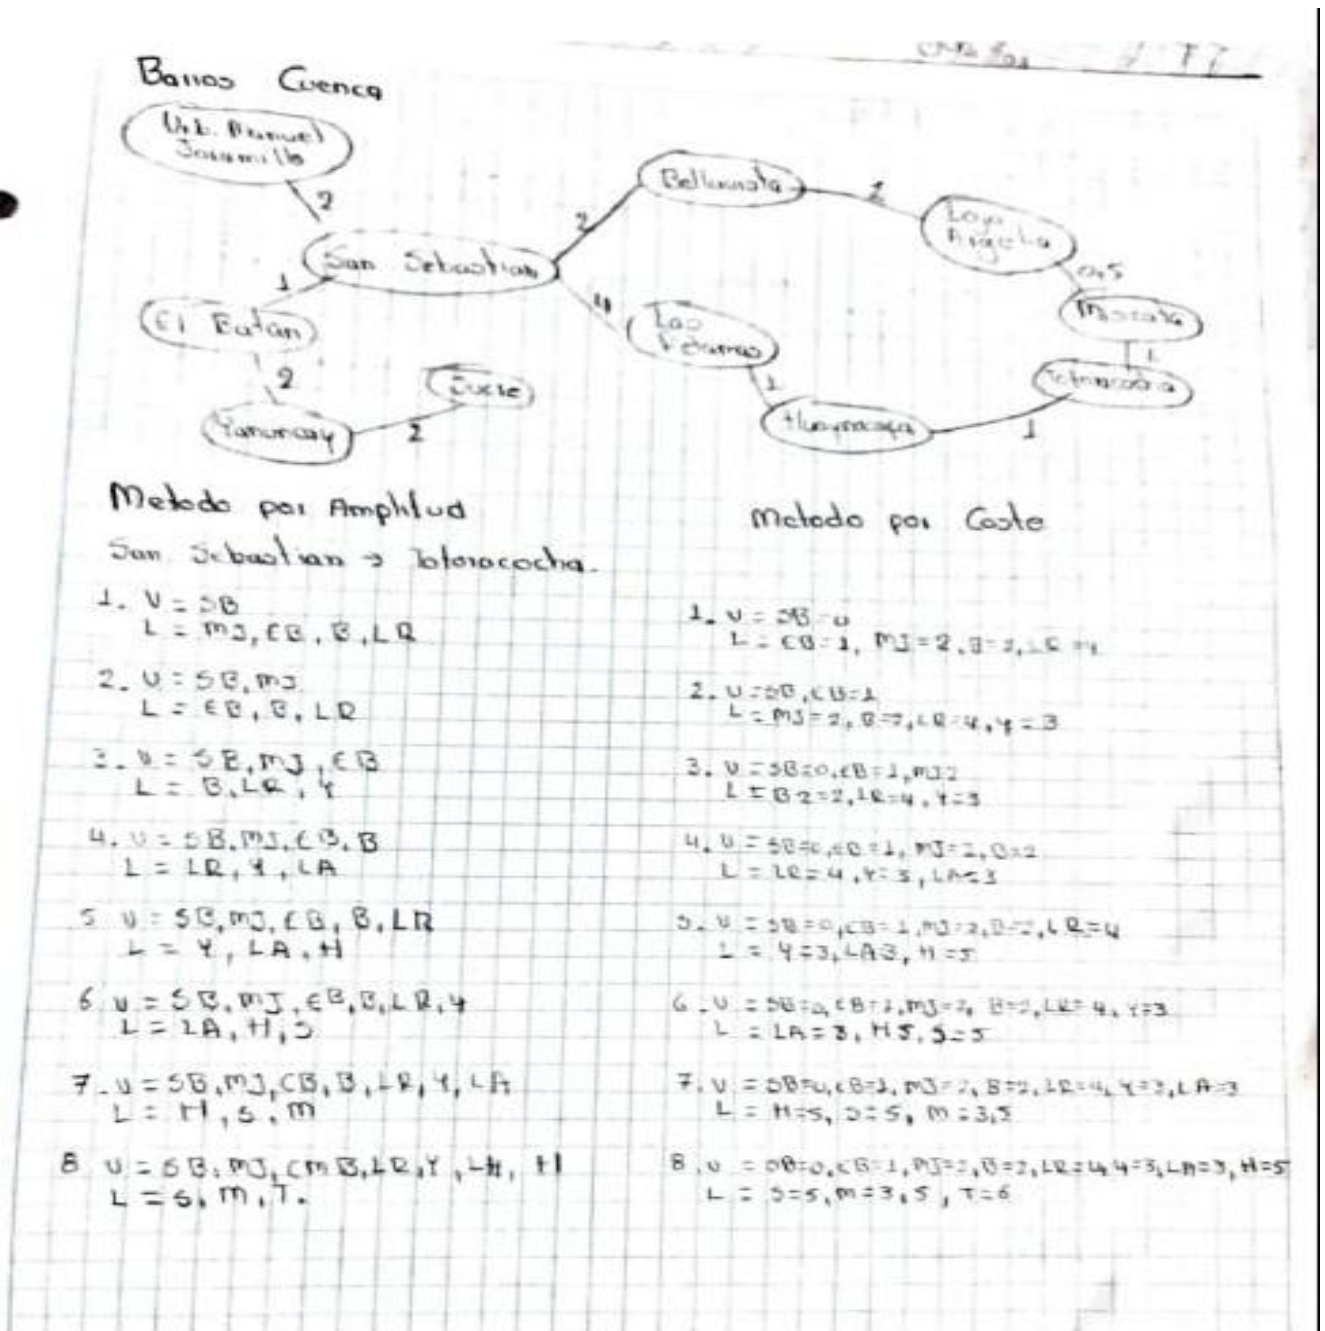 Barrios Cuenca
Urb. Manuel
Jaramillo
2
Bellavista
2
1
San Sebastian
1
0,5
El Batan
4
Las
2
Sucre
1
1
Totoracocha
Yanuncay
2
Huaynacapac
1
Metodo por Amplitud
San Sebastian → Totoracocha.
1. V = SB
L = MJ, EB, B, LR
2. V = SB, MJ
L = EB, B, LR
3. V = SB, MJ, EB
L = B, LR, Y
4. V = SB, MJ, EB, B
L = LR, Y, LA
5 V = SB, MJ, EB, B, LR
L = Y, LA, H
6 V = SB, MJ, EB, B, LR, Y
L = LA, H, S
7. V = SB, MJ, EB, B, LR, Y, LA
L = H, S, M
8 V = SB, MJ, LR, Y, H
L = S, M, T.
Metodo por Coste
1. V = SB = 0
L = EB=1, MJ=2, B=2, LR=4
2. V = SB, EB=1
L = MJ=2, B=2, LR=4, Y=3
3. V = SB=0, EB=1, MJ2
L = B2=2, LR=4, Y=3
4. V = SB=0, EB=1, MJ=2, B=2
L = LR=4, Y=3, LA=3
5. V = SB=0, EB=1, MJ=2, B=2, LR=4
L = Y=3, LA3, H=5
6. V = SB=0, EB=1, MJ=2, B=2, LR=4, Y=3
L = LA=3, H5, S=5
7. V = SB=0, EB=1, MJ=2, B=2, LR=4, Y=3, LA=3
L = H=5, S=5, M=3,5
8. V = SB=0, EB=1, MJ=2, B=2, LR=4, Y=3, LA=3, H=5
L = S=5, M=3,5, T=6